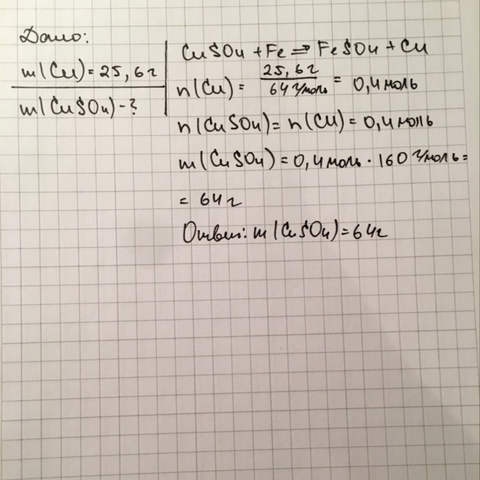 Дано:
m(Cu) = 25,6г
m(CuSO4) - ?
CuSO4 + Fe => FeSO4 + Cu
n(Cu) = 25,6г / 64 г/моль = 0,4 моль
n(CuSO4) = n(Cu) = 0,4 моль
m(CuSO4) = 0,4 моль · 160 г/моль =
= 64г
Ответ: m(CuSO4) = 64г